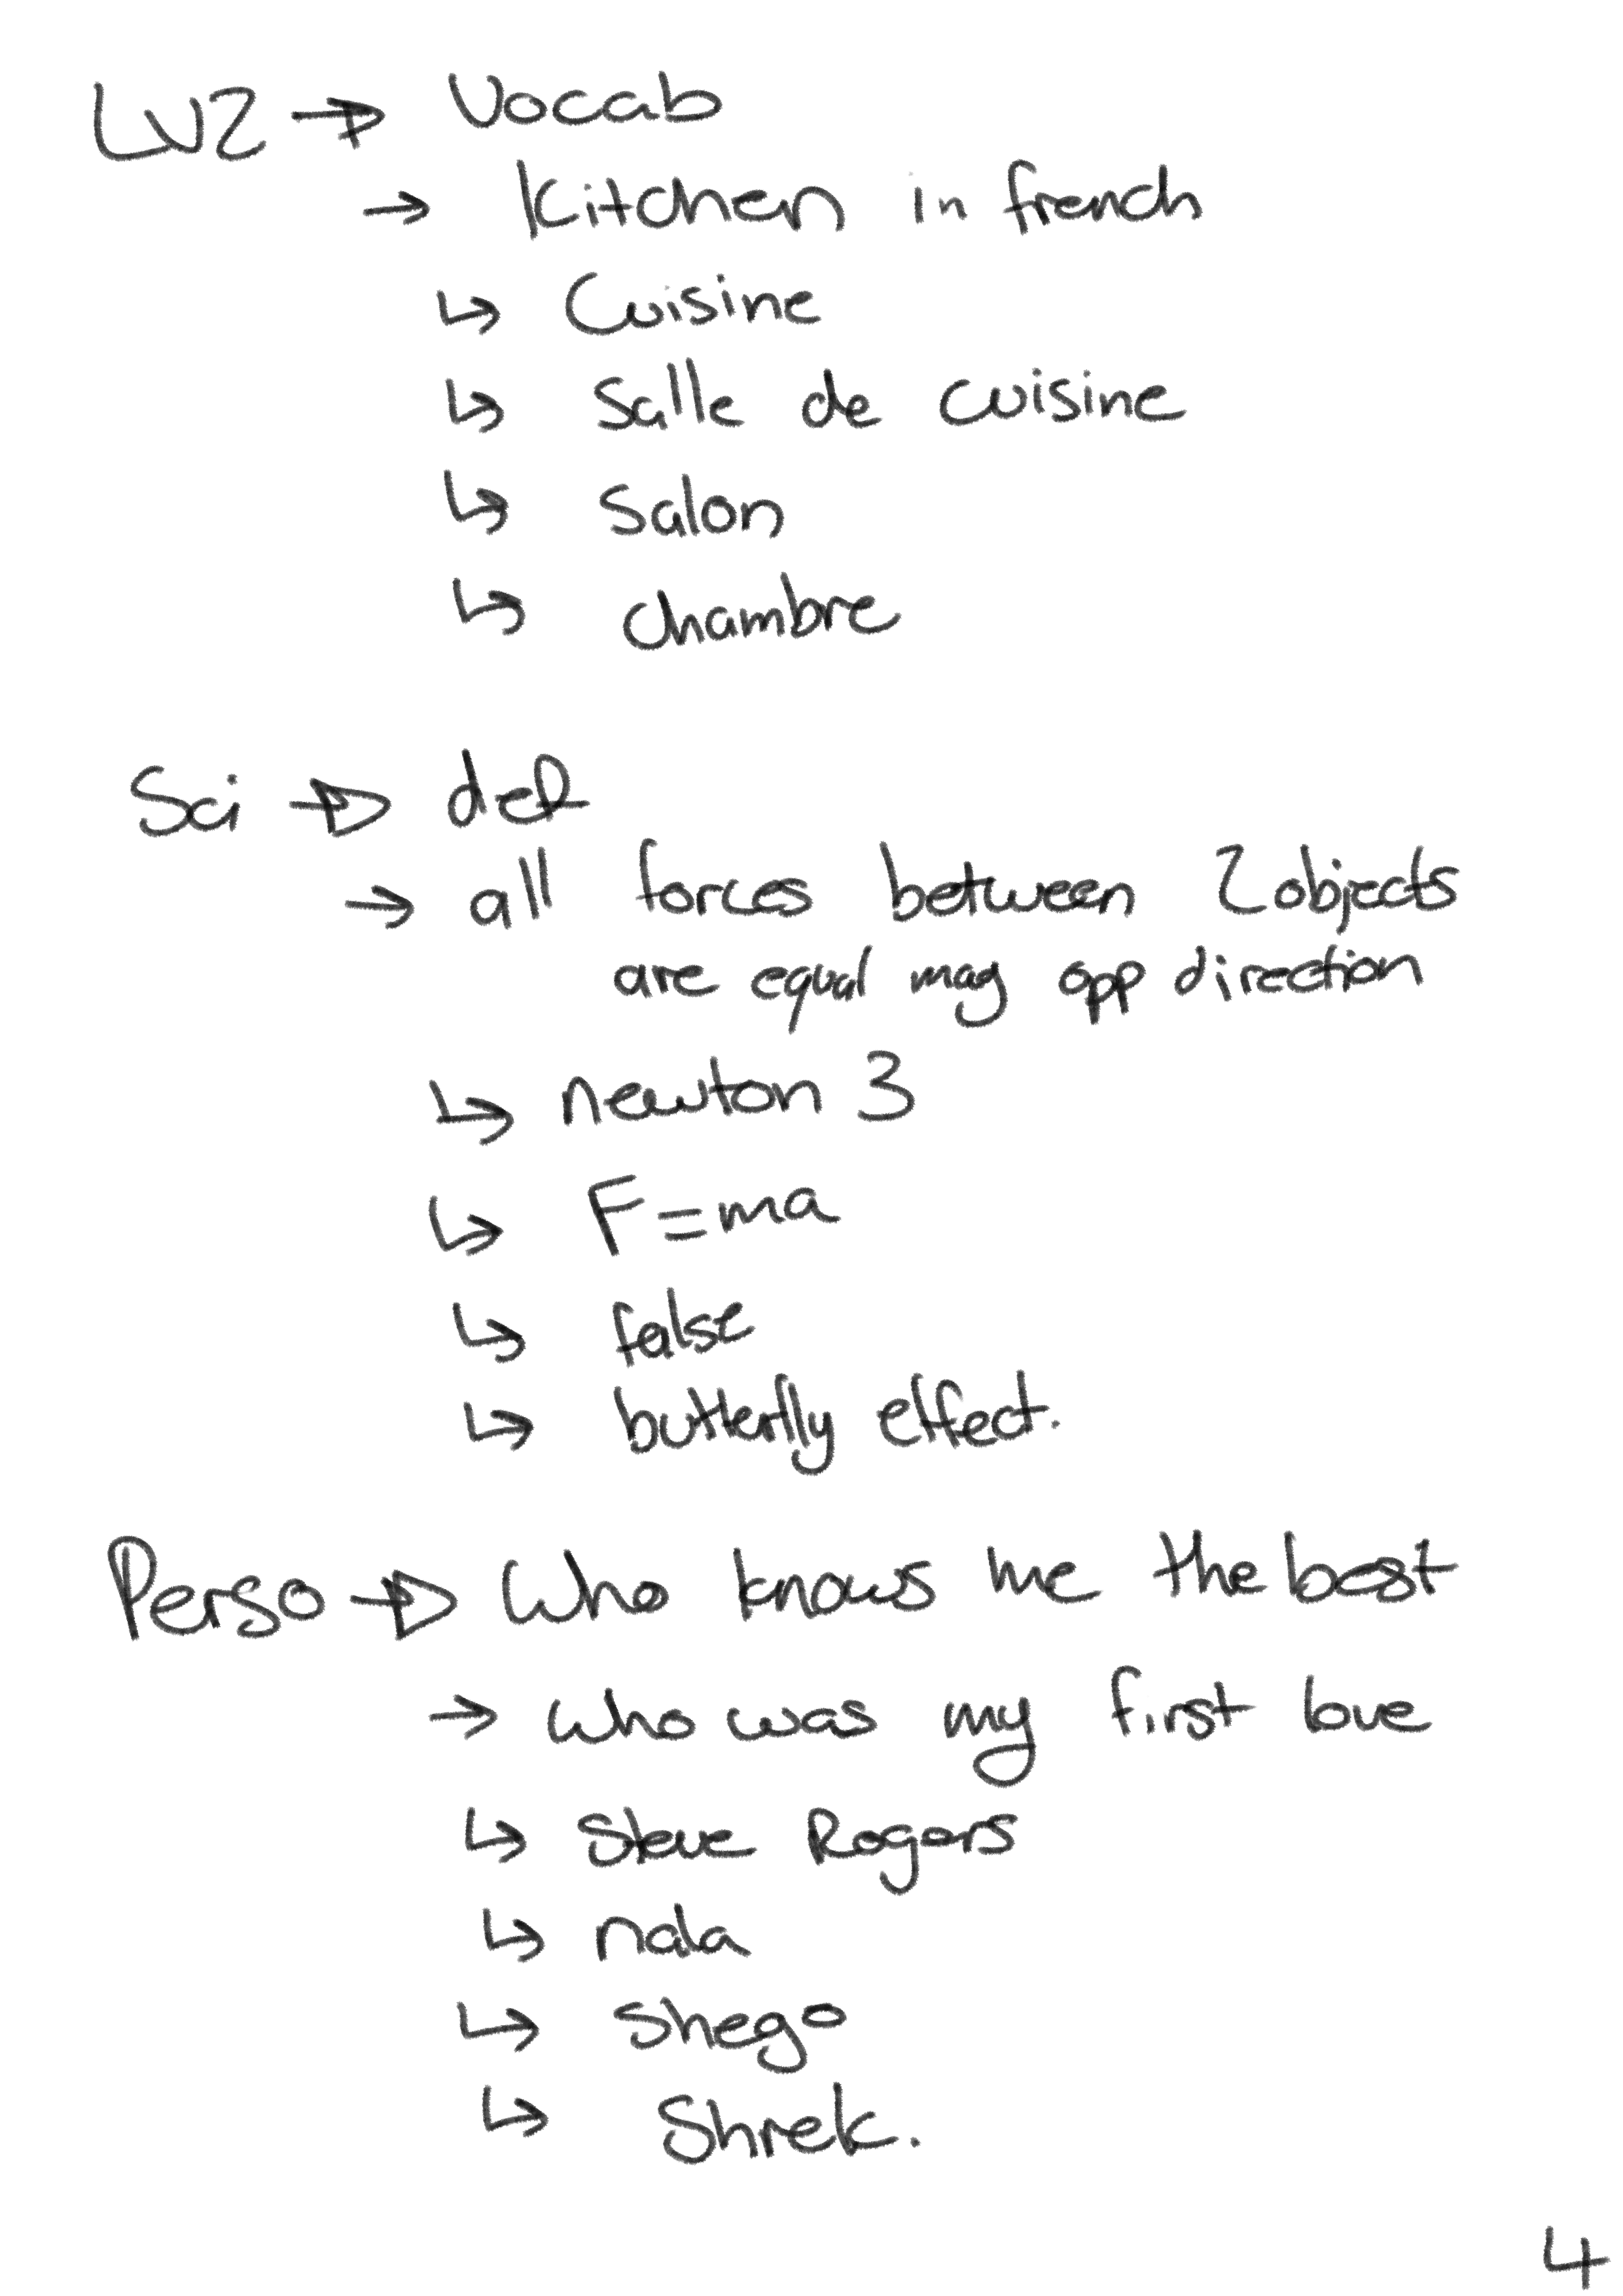 LV2 → Vocab
→ Kitchen in french
↳ Cuisine
↳ Salle de cuisine
↳ Salon
↳ Chambre
Sci → def
→ all forces between 2 objects
are equal mag opp direction
↳ newton 3
↳ F=ma
↳ false
↳ butterfly effect.
Perso → Who knows me the best
→ who was my first love
↳ Steve Rogers
↳ nala
↳ Shego
↳ Shrek.
4